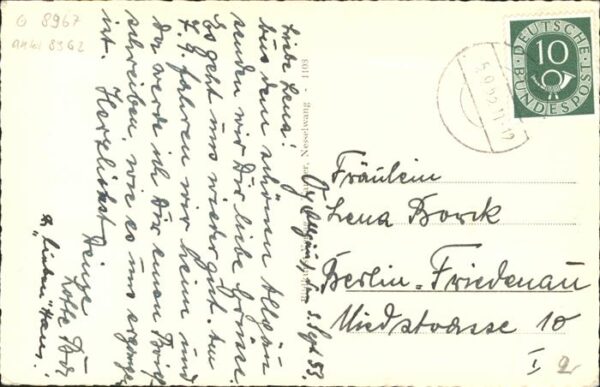 O 8967
ANKL 8362
Liebe Lena!
Aus dem schönen Allgäu
senden wir Dir liebe Grüsse.
Es geht uns wieder gut. Am
7.9. fahren wir heim und
da werde ich Dir einen Brief
schreiben, wie es uns ergangen
ist. Herzlichst Deine
Lotte
u. "lieber" Hans!
Allgäu, den 3. Sept. 52.
Nesselwang - 1108
DEUTSCHE
BUNDESPOST
10
5.9.52.11-12
Fräulein
Lena Borck
Berlin-Friedenau
Niedstrasse 10
I